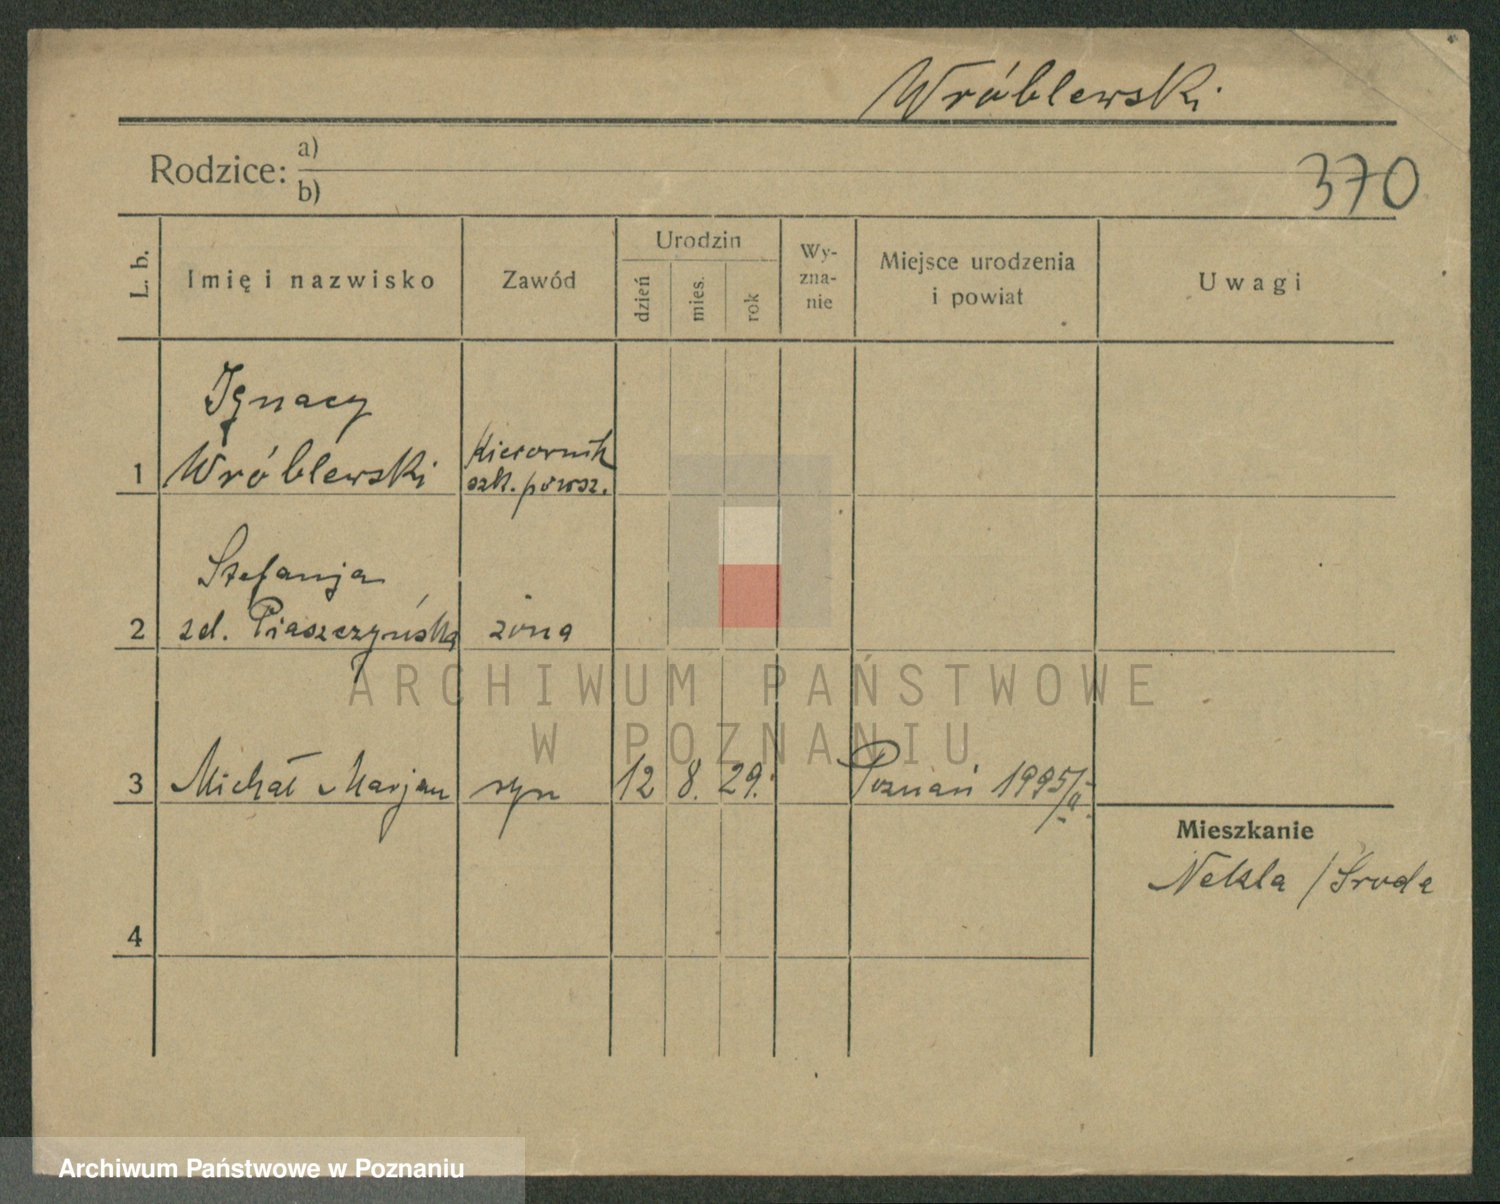 Wróblewski
Rodzice: a)
b)
370
L. b.
Imię i nazwisko
Zawód
Urodzin
dzień
mies.
rok
Wy-
zna-
nie
Miejsce urodzenia
i powiat
Uwagi
1
Ignacy
Wróblewski
Kierownik
szk. powsz.
2
Stefanja
zd. Piaszczyńska
żona
3
Michał Marjan
syn
12
8.
29.
Poznań 1995/II.
Mieszkanie
Nekla / Środa
4
ARCHIWUM PAŃSTWOWE
W POZNANIU
Archiwum Państwowe w Poznaniu